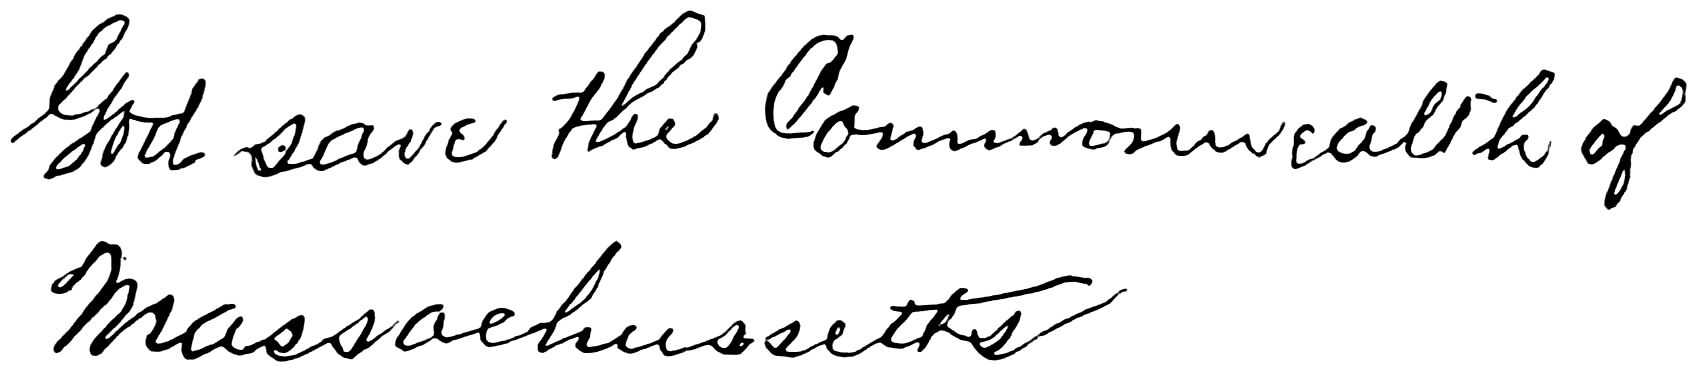 God save the Commonwealth of
Massachussetts